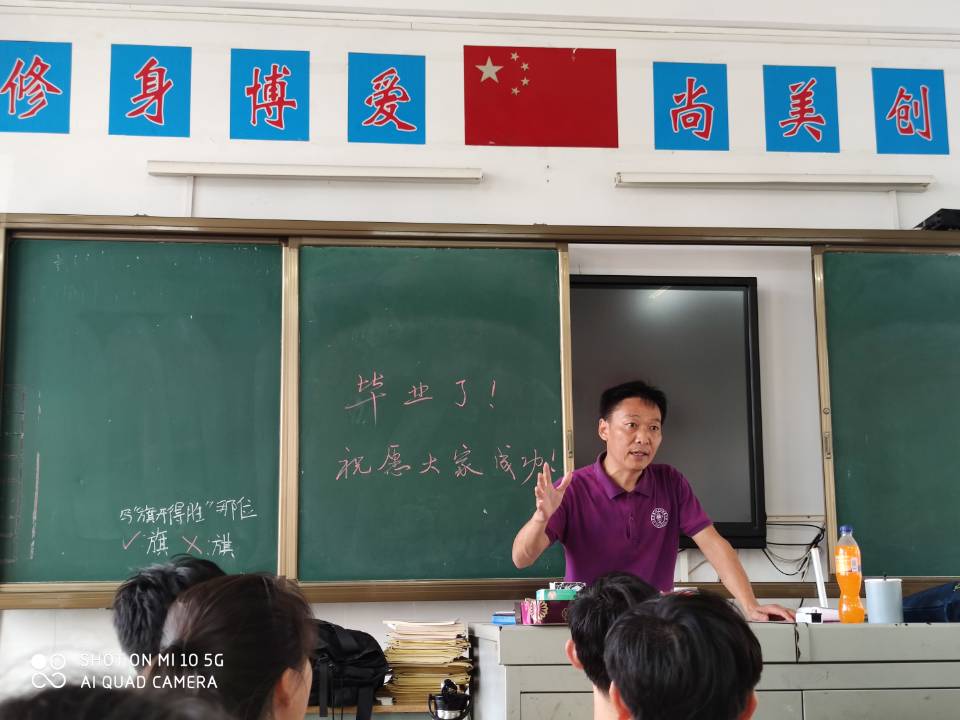 修身博爱 尚美创
毕业了!
祝愿大家成功!
写"旗开得胜"那位
✓:旗 ✗:旗
SHOT ON MI 10 5G
AI QUAD CAMERA